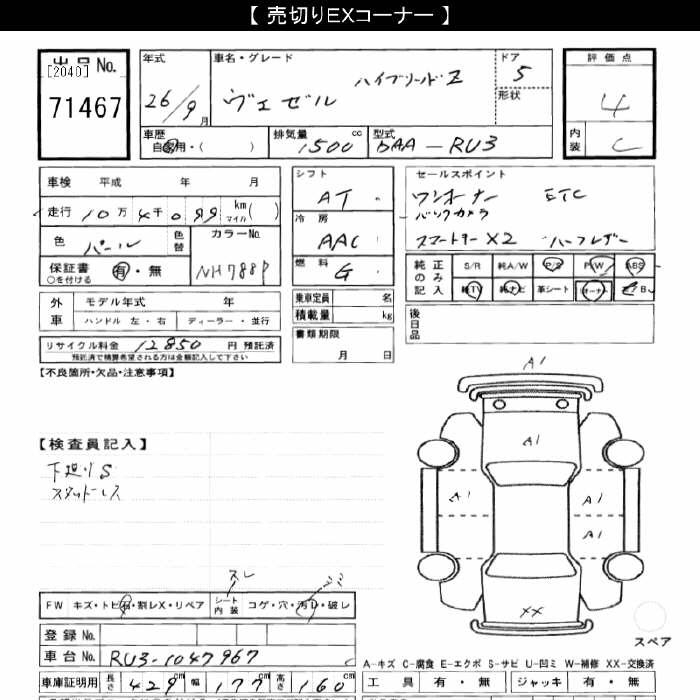 【 売切りEXコーナー 】
出品 No.
[2040]
71467
年式
26/9月
車名・グレード
ヴェゼル ハイブリッドZ
ドア
5
形状
評価点
4
内装
C
車歴
自家用・( )
排気量
1500 cc
型式
DAA-RU3
車検 平成 年 月
走行 10万4千099 km マイル ( )
色 パール 色替
カラーNo.
NH788P
保証書 有・無
○を付ける
外車
モデル年式 年
ハンドル 左・右 ディーラー・並行
リサイクル料金 12850 円 預託済
預託済で精算希望される方は金額記入して下さい
シフト
AT
冷房
AAC
燃料
G
乗車定員 名
積載量 kg
書類期限
月 日
セールスポイント
ワンオーナー ETC
バックカメラ
スマートキーX2 ハーフレザー
純正のみ記入
S/R 純A/W P/S P/W ABS
純TV 純ナビ 革シート エアB
後日品
【不良箇所・欠品・注意事項】
【検査員記入】
下廻りS
スタッドレス
A1
A1
A1
A1
A1
XX
スレ
FW キズ・トビ石・割レX・リペア
シート内装 コゲ・穴・汚レ・破レ
スペア
登録 No.
車台 No. RU3-1047967
A-キズ C-腐食 E-エクボ S-サビ U-凹ミ W-補修 XX-交換済
車庫証明用 長さ 429cm 幅 177cm 高さ 160cm
工具 有・無 ジャッキ 有・無